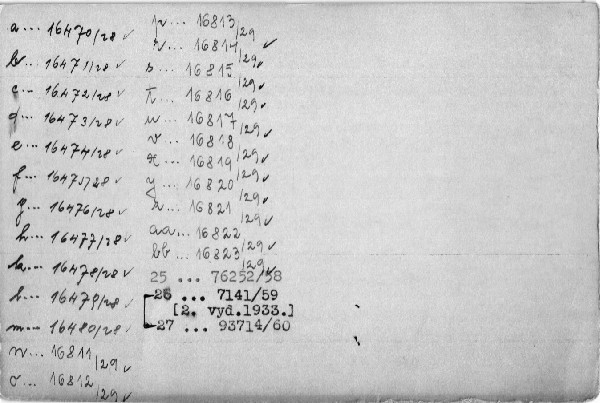 a ... 16470/28 ✓
b ... 16471/28 ✓
c ... 16472/28 ✓
d ... 16473/28 ✓
e ... 16474/28 ✓
f ... 16475/28 ✓
g ... 16476/28 ✓
h ... 16477/28 ✓
k ... 16478/28 ✓
l ... 16479/28 ✓
m ... 16480/28 ✓
n ... 16811/29 ✓
o ... 16812/29 ✓
p ... 16813/29
r ... 16814/29 ✓
s ... 16815/29 ✓
t ... 16816/29 ✓
u ... 16817/29 ✓
v ... 16818/29 ✓
x ... 16819/29 ✓
y ... 16820/29 ✓
z ... 16821/29 ✓
aa ... 16822/29 ✓
bb ... 16823/29 ✓
25 ... 76252/58
26 ... 7141/59
[2. vyd.1933.]
27 ... 93714/60